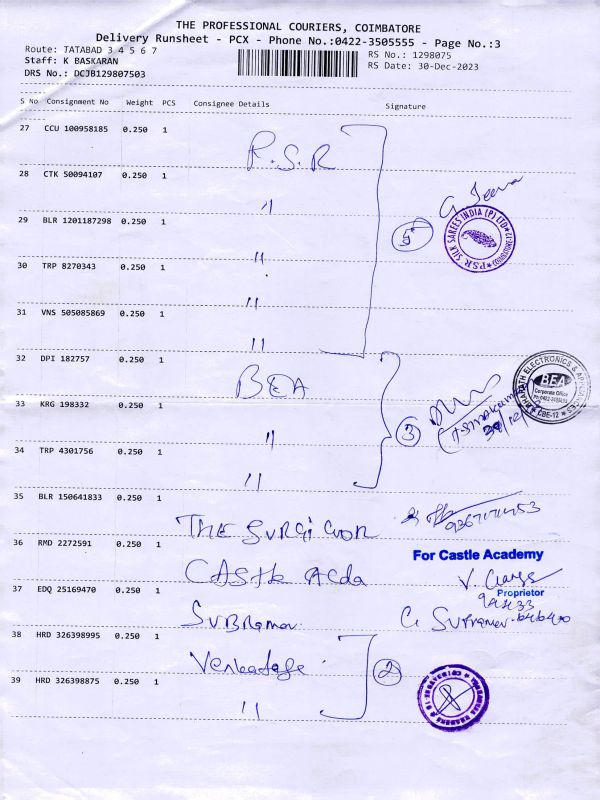 THE PROFESSIONAL COURIERS, COIMBATORE
Delivery Runsheet - PCX - Phone No.:0422-3505555 - Page No.:3
Route: TATABAD 3 4 5 6 7
RS No.: 1298075
Staff: K BASKARAN
RS Date: 30-Dec-2023
DRS No.: DCJB129807503
S No Consignment No Weight PCS Consignee Details Signature
27 CCU 100958185 0.250 1
P.S.R
28 CTK 50094107 0.250 1
"
G. Jeeva
29 BLR 1201187298 0.250 1
PSR SILK SAREES INDIA (P) LTD
5
"
30 TRP 8270343 0.250 1
"
31 VNS 505085869 0.250 1
"
32 DPI 182757 0.250 1
BEA
BHARATH ELECTRONICS & APPLIANCES
BEA
Corporate Office
CBE-12
33 KRG 198332 0.250 1
"
3
34 TRP 4301756 0.250 1
"
35 BLR 150641833 0.250 1
THE
36 RMD 2272591 0.250 1
For Castle Academy
CASTLE ACda
37 EDQ 25169470 0.250 1
Proprietor
SUBRamar
38 HRD 326398995 0.250 1
2
39 HRD 326398875 0.250 1
"